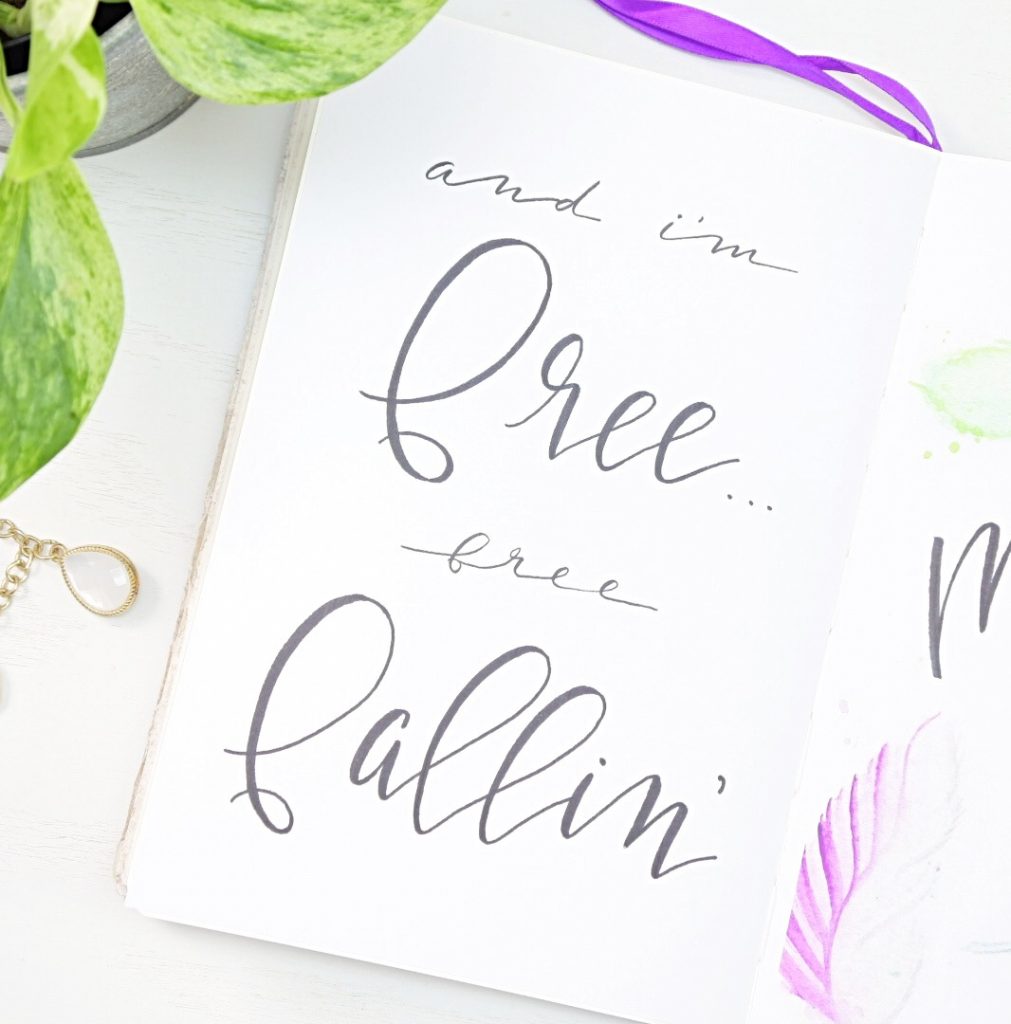 and i'm
free...
free
fallin'